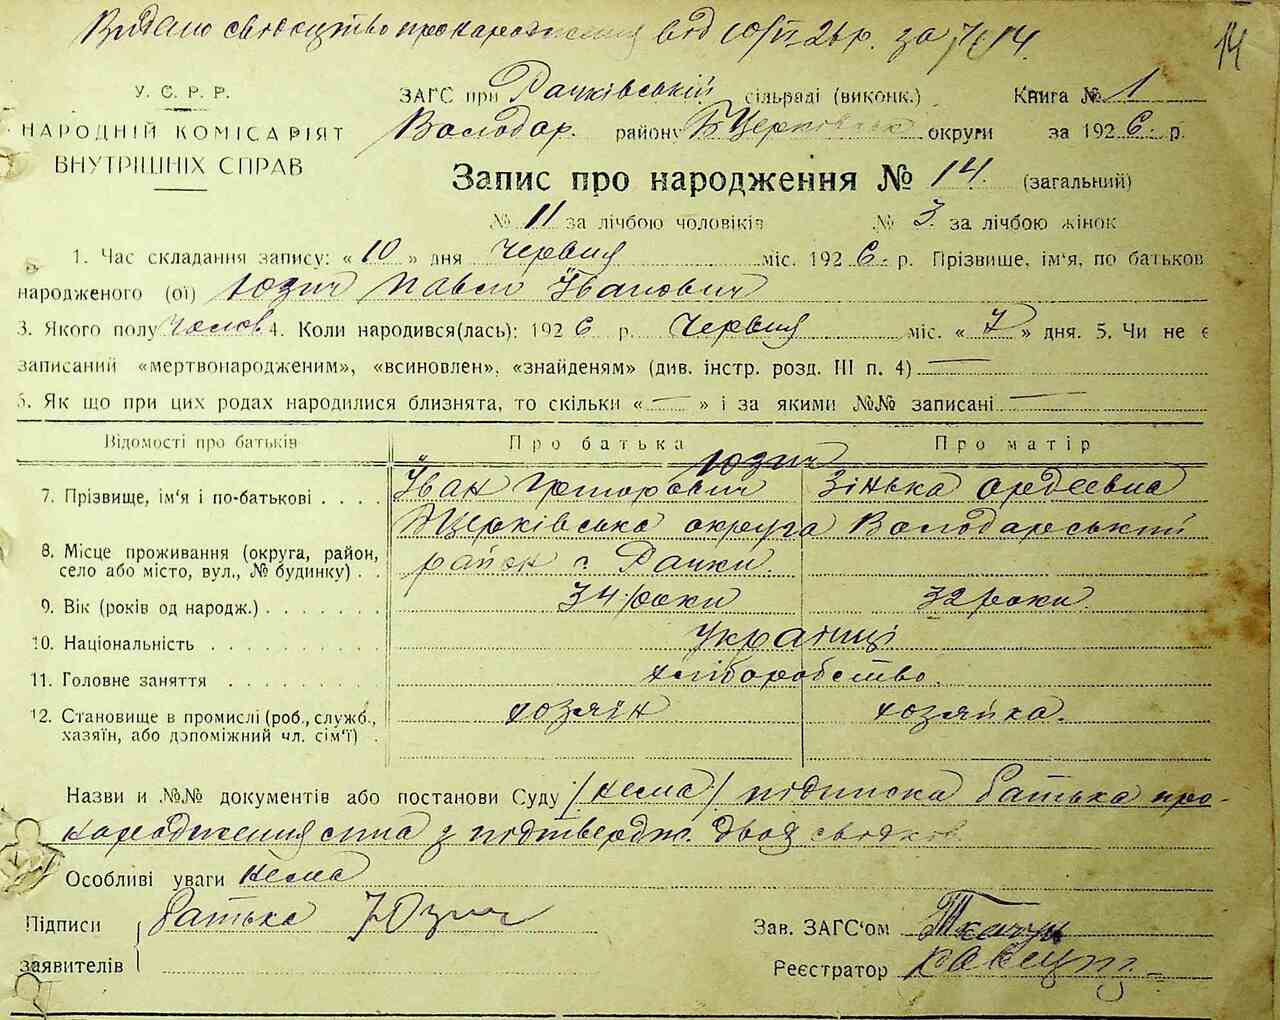 Видано свідоцтво про народження від 10/VI-26 р. за № 14.
14
У. С. Р. Р.
НАРОДНІЙ КОМІСАРІЯТ
ВНУТРІШНІХ СПРАВ
ЗАГС при Рачківській сільраді (виконк.) Книга № 1
Володар. району Б Церковськ округи за 1926. р.
Запис про народження № 14. (загальний)
№ 11 за лічбою чоловіків № 3. за лічбою жінок
1. Час складання запису: « 10 » дня червня міс. 1926. р. Прізвище, ім'я, по батьков
народженого (ої) Юзич Павло Іванович
3. Якого полу чолов. 4. Коли народився(лась): 1926 р. червня міс. « 7 » дня. 5. Чи не є
записаний «мертвонародженим», «всиновлен», «знайденям» (див. інстр. розд. III п. 4) —
6. Як що при цих родах народилися близнята, то скільки « — » і за якими №№ записані —
Відомості про батьків Про батька Про матір
Юзич
7. Прізвище, ім'я і по-батькові . . . . Іван Григорович Зінька
БЦерківська округа Володарський
8. Місце проживання (округа, район, район с. Рачки.
село або місто, вул., № будинку) . .
9. Вік (років од народж.) . . . . . . . 34 роки 32 роки.
10. Національність . . . . . . . . . . українці
11. Головне заняття . . . . . . . . хліборобство.
12. Становище в промислі (роб., служб., хозяїн хозяйка.
хазяїн, або допоміжний чл. сім'ї) .
Назви и №№ документів або постанови Суду /нема/ підписка батька про-
народження сина з підтвердж. двох свідків.
Особливі уваги нема
Підписи батька Юзич Зав. ЗАГС'ом Ткачук
заявителів Реєстратор